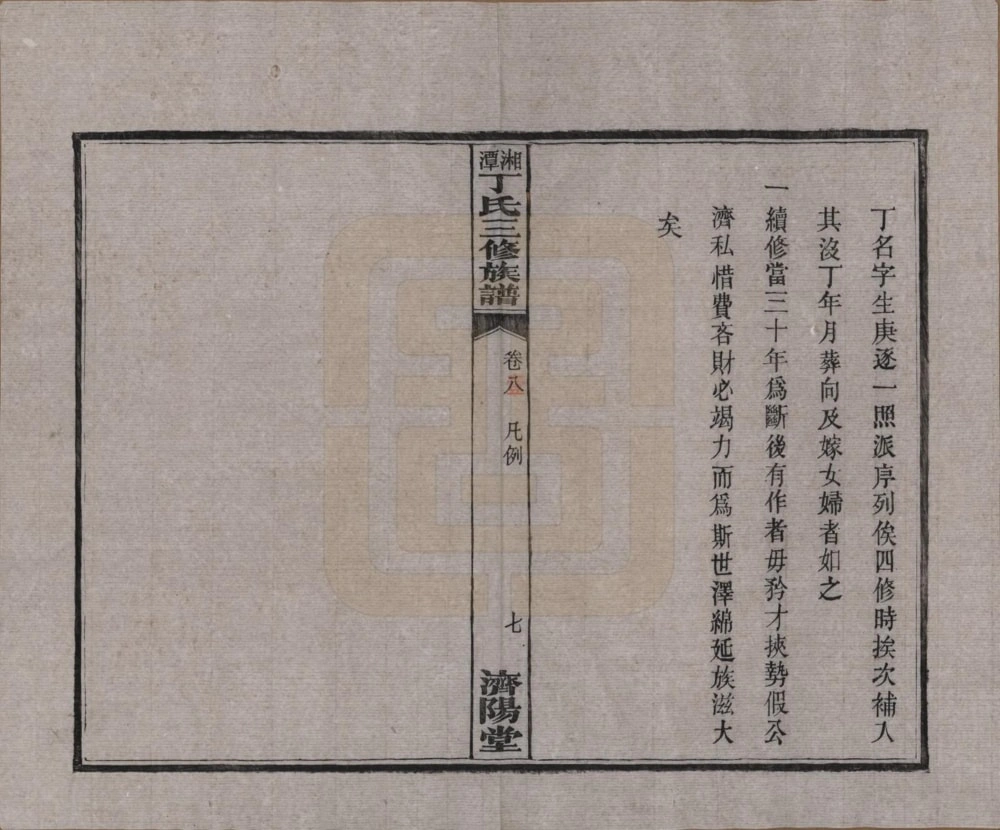 丁名字生庚逐一照派序列俟四修時挨次補入
其沒丁年月葬向及嫁女婦者如之
一續修當三十年爲斷後有作者毋矜才挾勢假公
濟私惜費吝財必竭力而爲斯世澤綿延族滋大
矣
湘潭丁氏三修族譜
卷八
凡例
七
濟陽堂